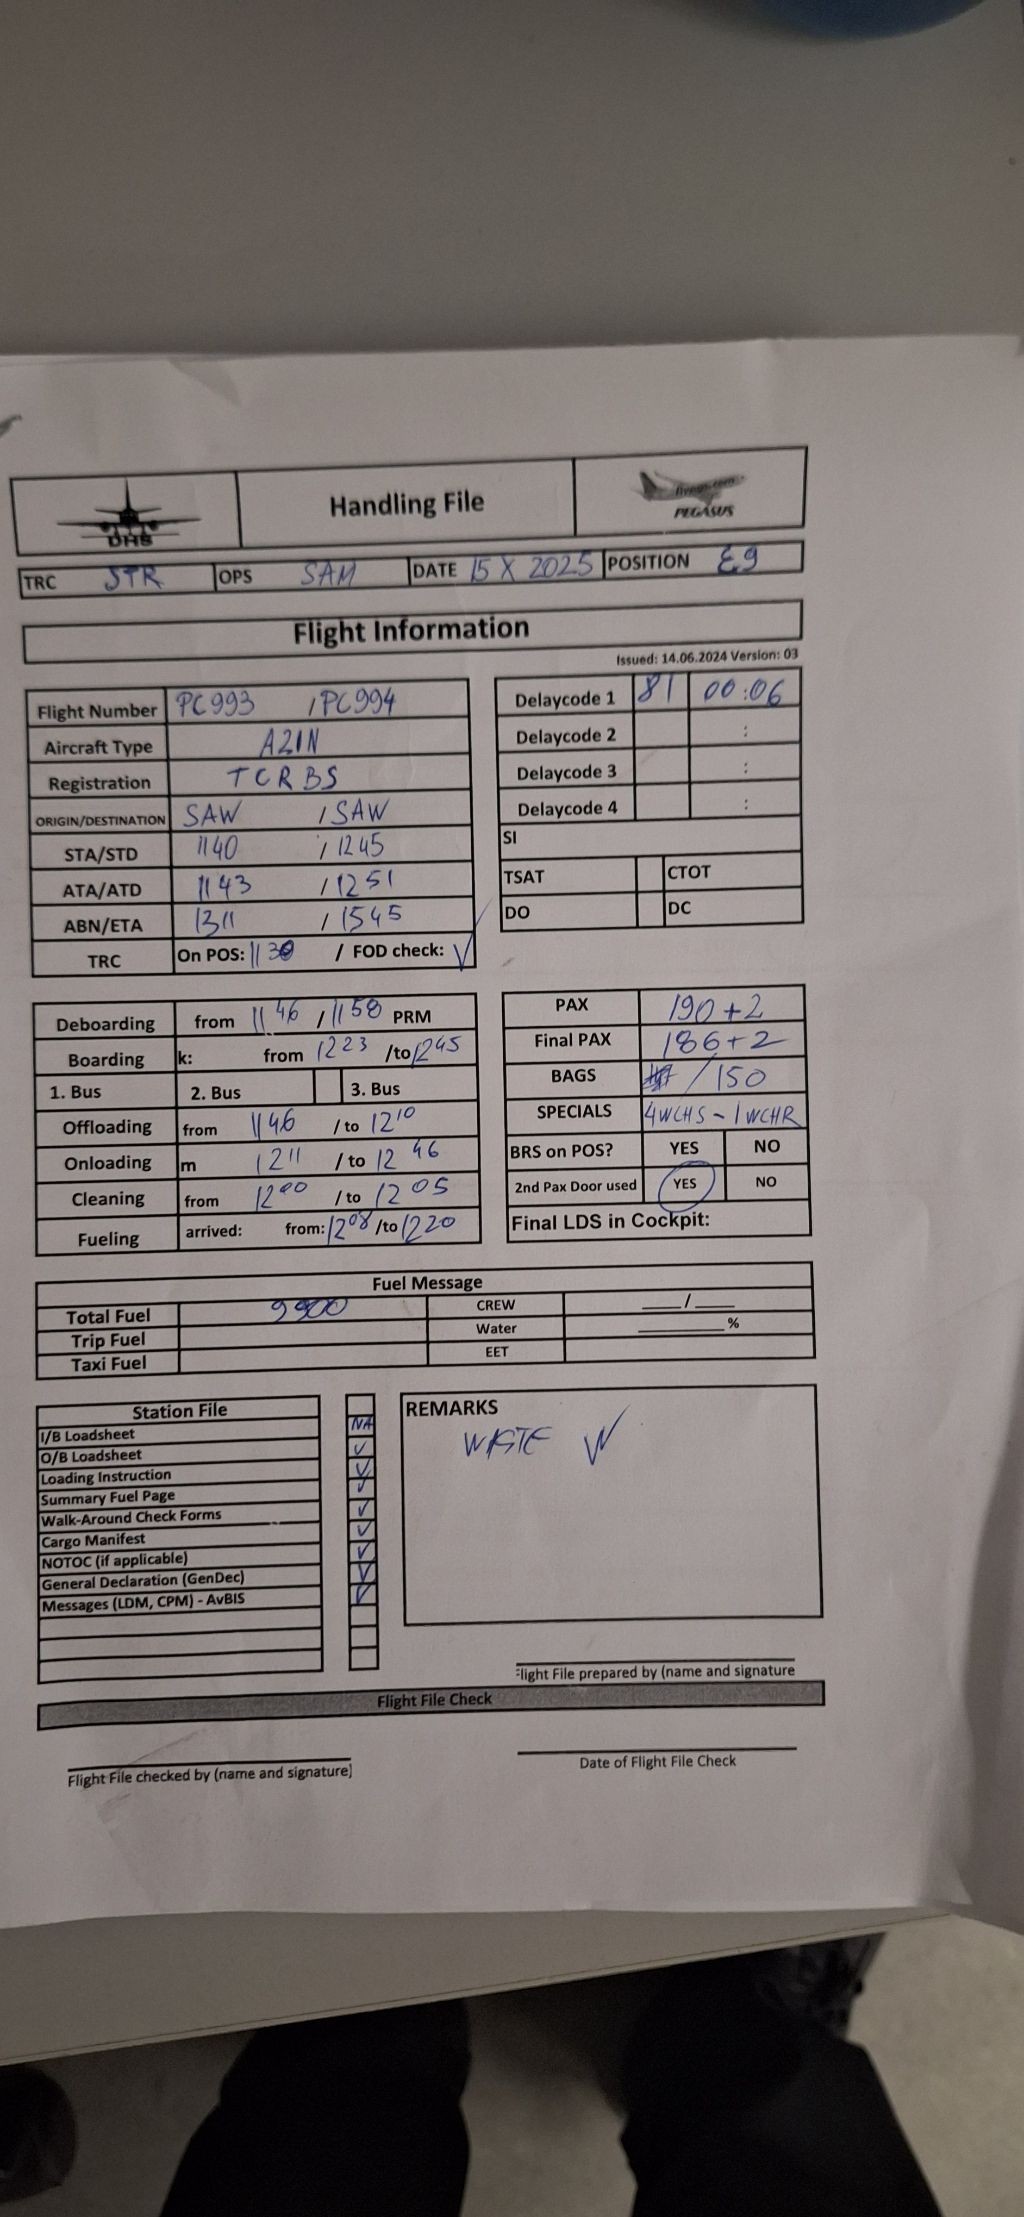 DHS
Handling File
flypgs.com
PEGASUS
TRC STR OPS SAM DATE 15 X 2025 POSITION E9
Flight Information
Issued: 14.06.2024 Version: 03
Flight Number PC993 / PC994
Aircraft Type A21N
Registration TCRBS
ORIGIN/DESTINATION SAW / SAW
STA/STD 1140 / 1245
ATA/ATD 1143 / 1251
ABN/ETA 1311 / 1545
TRC On POS: 1130 / FOD check: ✓
Delaycode 1 81 00:06
Delaycode 2 :
Delaycode 3 :
Delaycode 4 :
SI
TSAT CTOT
DO DC
Deboarding from 1146 / 1158 PRM
Boarding k: from 1223 /to 1245
1. Bus 2. Bus 3. Bus
Offloading from 1146 / to 1210
Onloading m 1211 / to 1246
Cleaning from 1200 / to 1205
Fueling arrived: from: 1208 /to 1220
PAX 190+2
Final PAX 186+2
BAGS / 150
SPECIALS 4WCHS - 1WCHR
BRS on POS? YES NO
2nd Pax Door used YES NO
Final LDS in Cockpit:
Fuel Message
Total Fuel 9900 CREW ___/___
Trip Fuel Water ______%
Taxi Fuel EET
Station File
I/B Loadsheet NA
O/B Loadsheet ✓
Loading Instruction ✓
Summary Fuel Page ✓
Walk-Around Check Forms ✓
Cargo Manifest ✓
NOTOC (if applicable) ✓
General Declaration (GenDec) ✓
Messages (LDM, CPM) - AvBIS ✓
REMARKS
WASTE ✓
Flight File prepared by (name and signature
Flight File Check
Flight File checked by (name and signature)
Date of Flight File Check